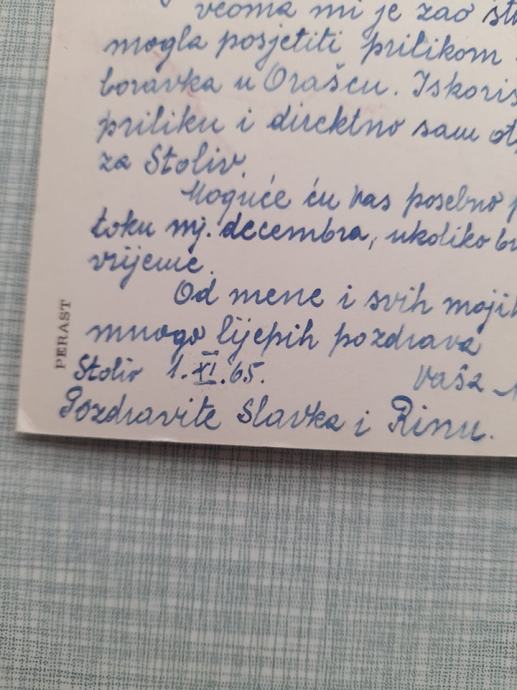 veoma mi je žao
mogla posjetiti prilikom
boravka u Orašcu.
priliku i direktno sam
za Stoliv.
Moguće ću Vas posebno
toku mj. decembra, ukoliko
vrijeme.
Od mene i svih mojih
mnogo lijepih pozdrava
Stoliv 1.XI.65. Vaša
Pozdravite Slavka i Rinu.
PERAST